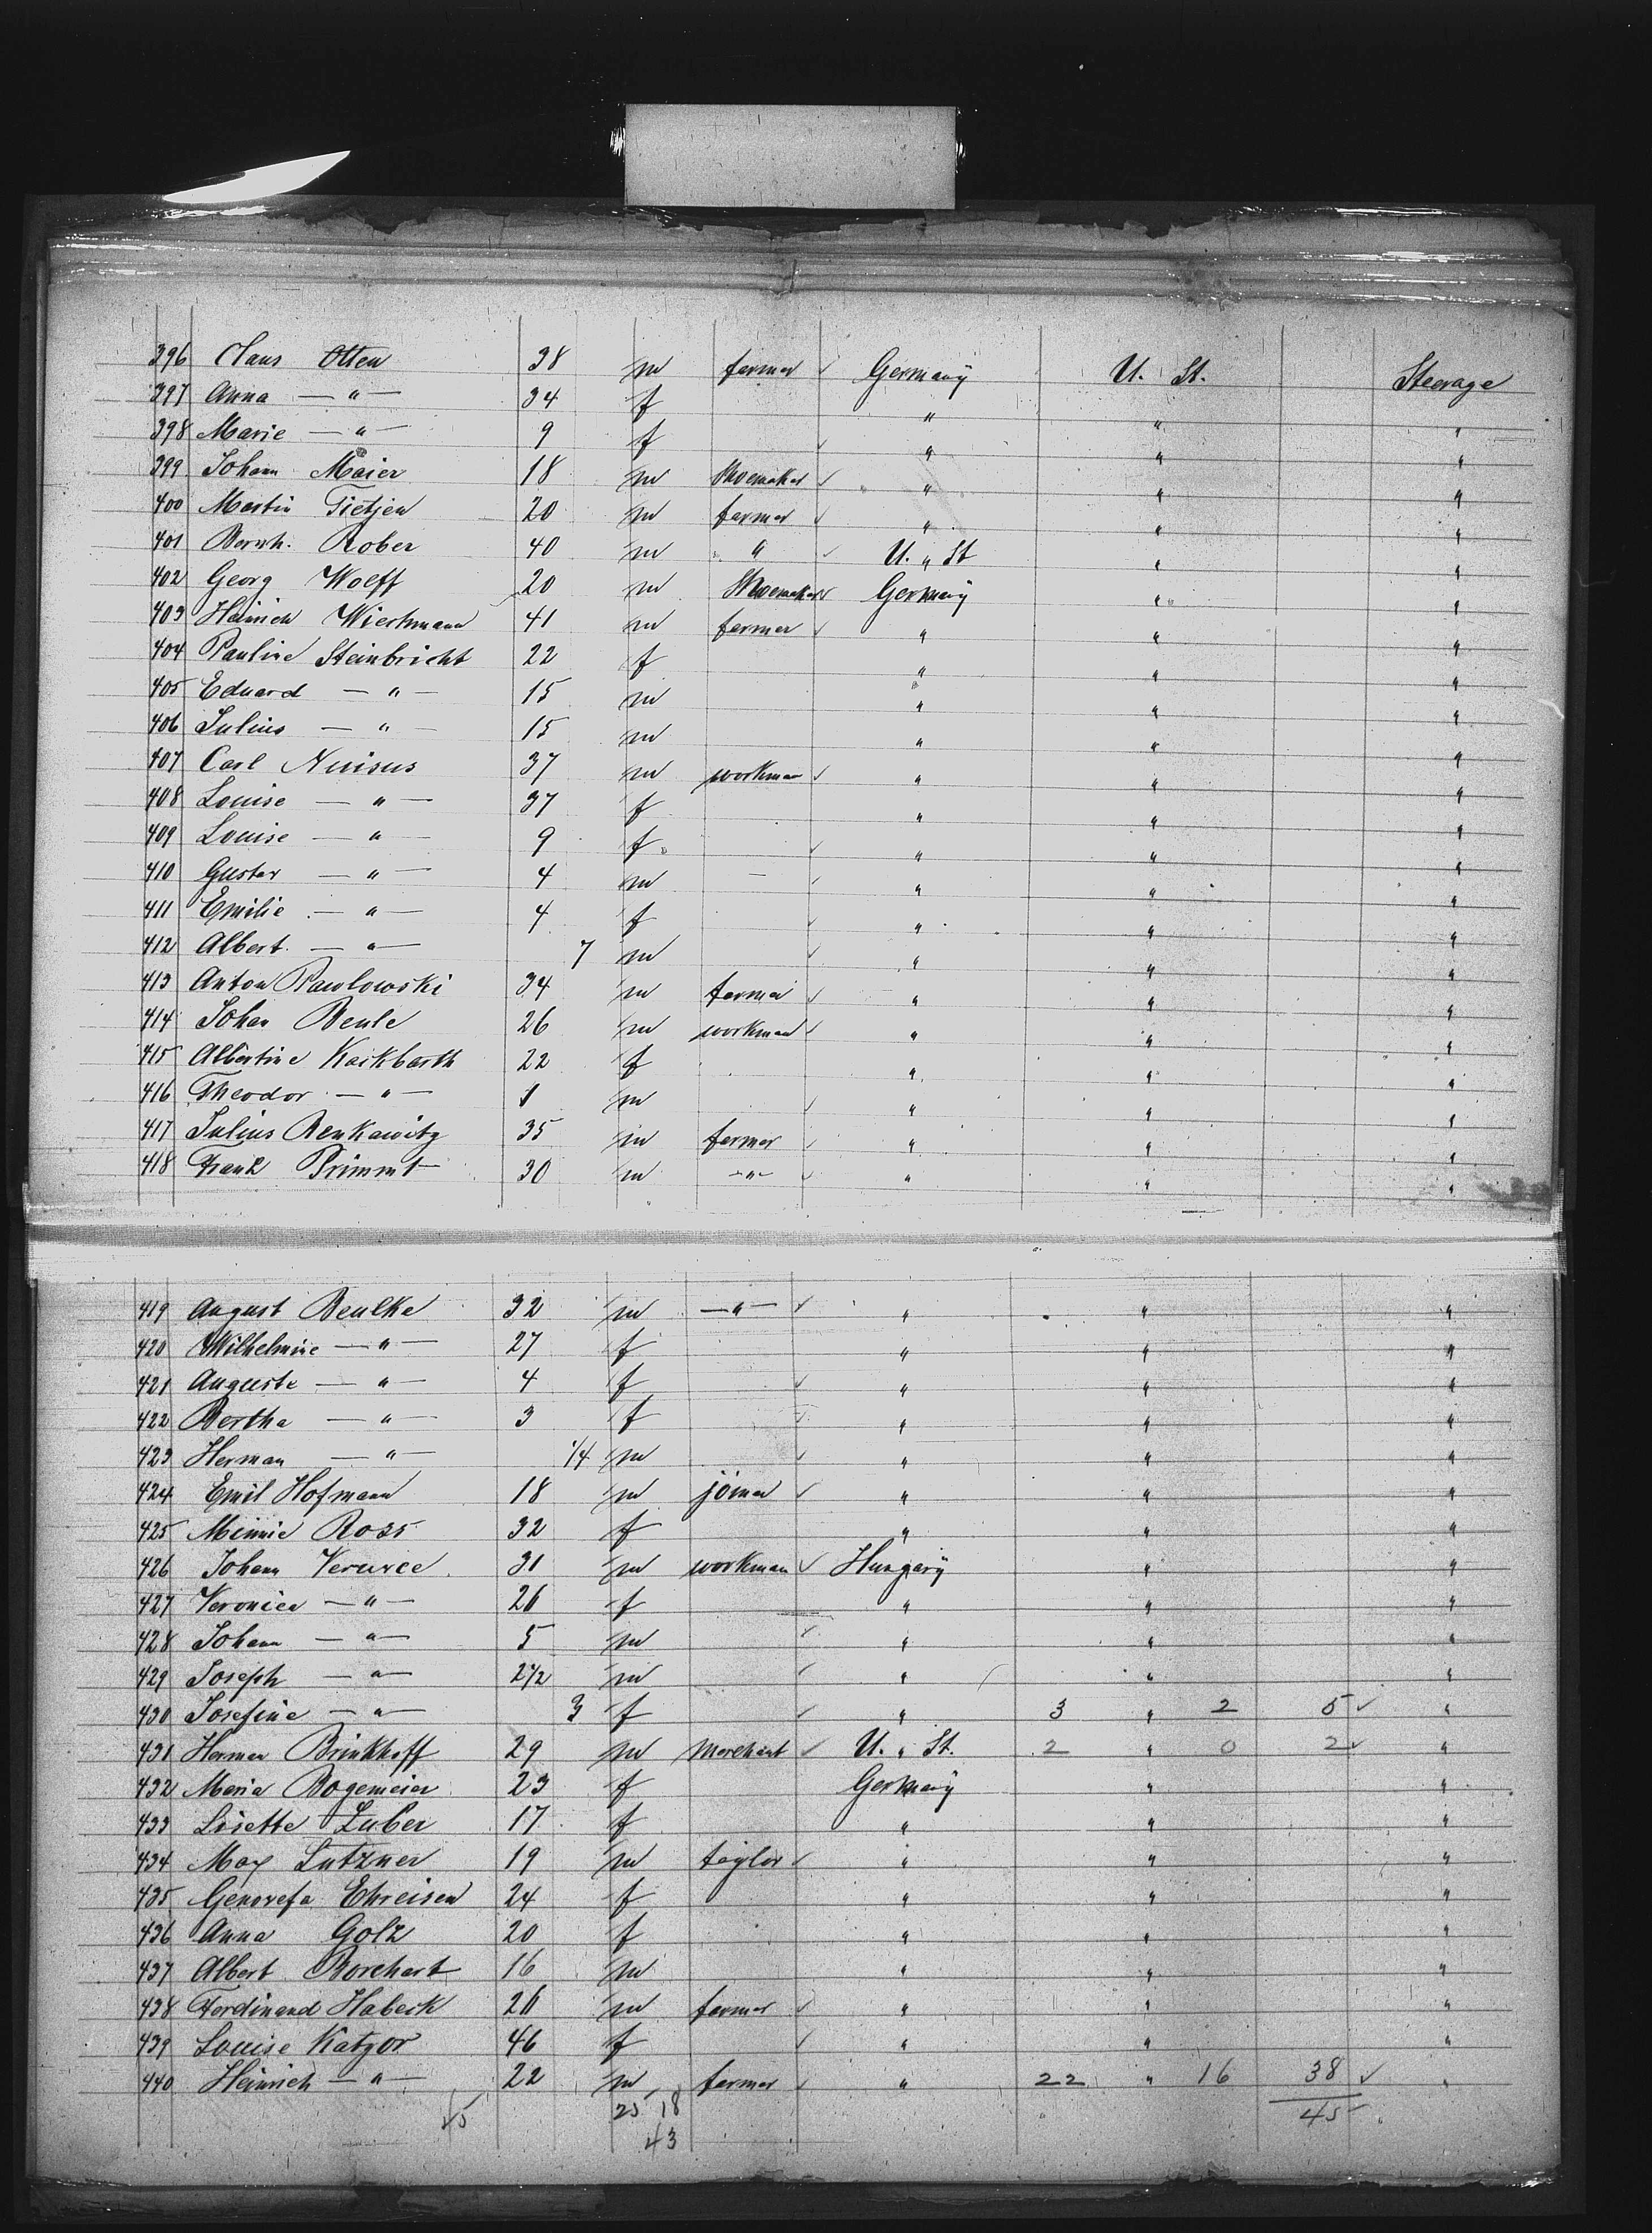 396 Claus Otten 38 m farmer ✓ Germany U. St. Steerage
397 Anna — " — 34 f " " "
398 Marie — " — 9 f ✓ " " "
399 Johann Maier 18 m Shoemaker ✓ " " "
400 Martin Tietjen 20 m farmer ✓ " " "
401 Bernh. Rober 40 m " ✓ U. " St " "
402 Georg Woeff 20 m Shoemaker ✓ Germany " "
403 Heinrich Wiechmann 41 m farmer ✓ " " "
404 Pauline Steinbricht 22 f " " "
405 Eduard — " — 15 m " " "
406 Julius — " — 15 m " " "
407 Carl 37 m workman ✓ " " "
408 Louise — " — 37 f " " "
409 Louise — " — 9 f ✓ " " "
410 Gustav — " — 4 m — ✓ " " "
411 Emilie — " — 4 f ✓ " " "
412 Albert — " — 7 m ✓ " " "
413 Anton Pawlowski 34 m farmer ✓ " " "
414 Johan Beule 26 m workman ✓ " " "
415 Albertine Kackbarth 22 f " " "
416 Theodor — " — 1 m ✓ " " "
417 Julius Renkawitz 35 m farmer ✓ " " "
418 Frank Primmt 30 m — " — ✓ " " "
419 August Beulke 32 m — " — ✓ " " "
420 Wilhelmine — " — 27 f " " "
421 Auguste — " — 4 f ✓ " " "
422 Bertha — " — 3 f ✓ " " "
423 Herman — " — 1/4 m ✓ " " "
424 Emil Hofmann 18 m joiner ✓ " " "
425 Minnie Ross 32 f " " "
426 Johann 31 m workman ✓ Hungary " "
427 Veronica — " — 26 f " " "
428 Johann — " — 5 m ✓ " " "
429 Joseph — " — 2 1/2 m ✓ " " "
430 Josefine — " — 3 f ✓ " 3 " 2 5 ✓ "
431 Herman Brinkhoff 29 m Merchant ✓ U. " St. 2 " 0 2 ✓ "
432 Maria Bogemeier 23 f Germany " "
433 Lisette Luber 17 f " " "
434 Max Lutzner 19 m taylor ✓ " " "
435 Genovefa Ehreisen 24 f " " "
436 Anna Golz 20 f " " "
437 Albert Borchart 16 m " " "
438 Ferdinand Habeck 26 m farmer ✓ " " "
439 Louise Katzor 46 f ✓ " " "
440 Heinrich — " — 22 m farmer ✓ " 22 " 16 38 ✓ "
45 25 18 45
43